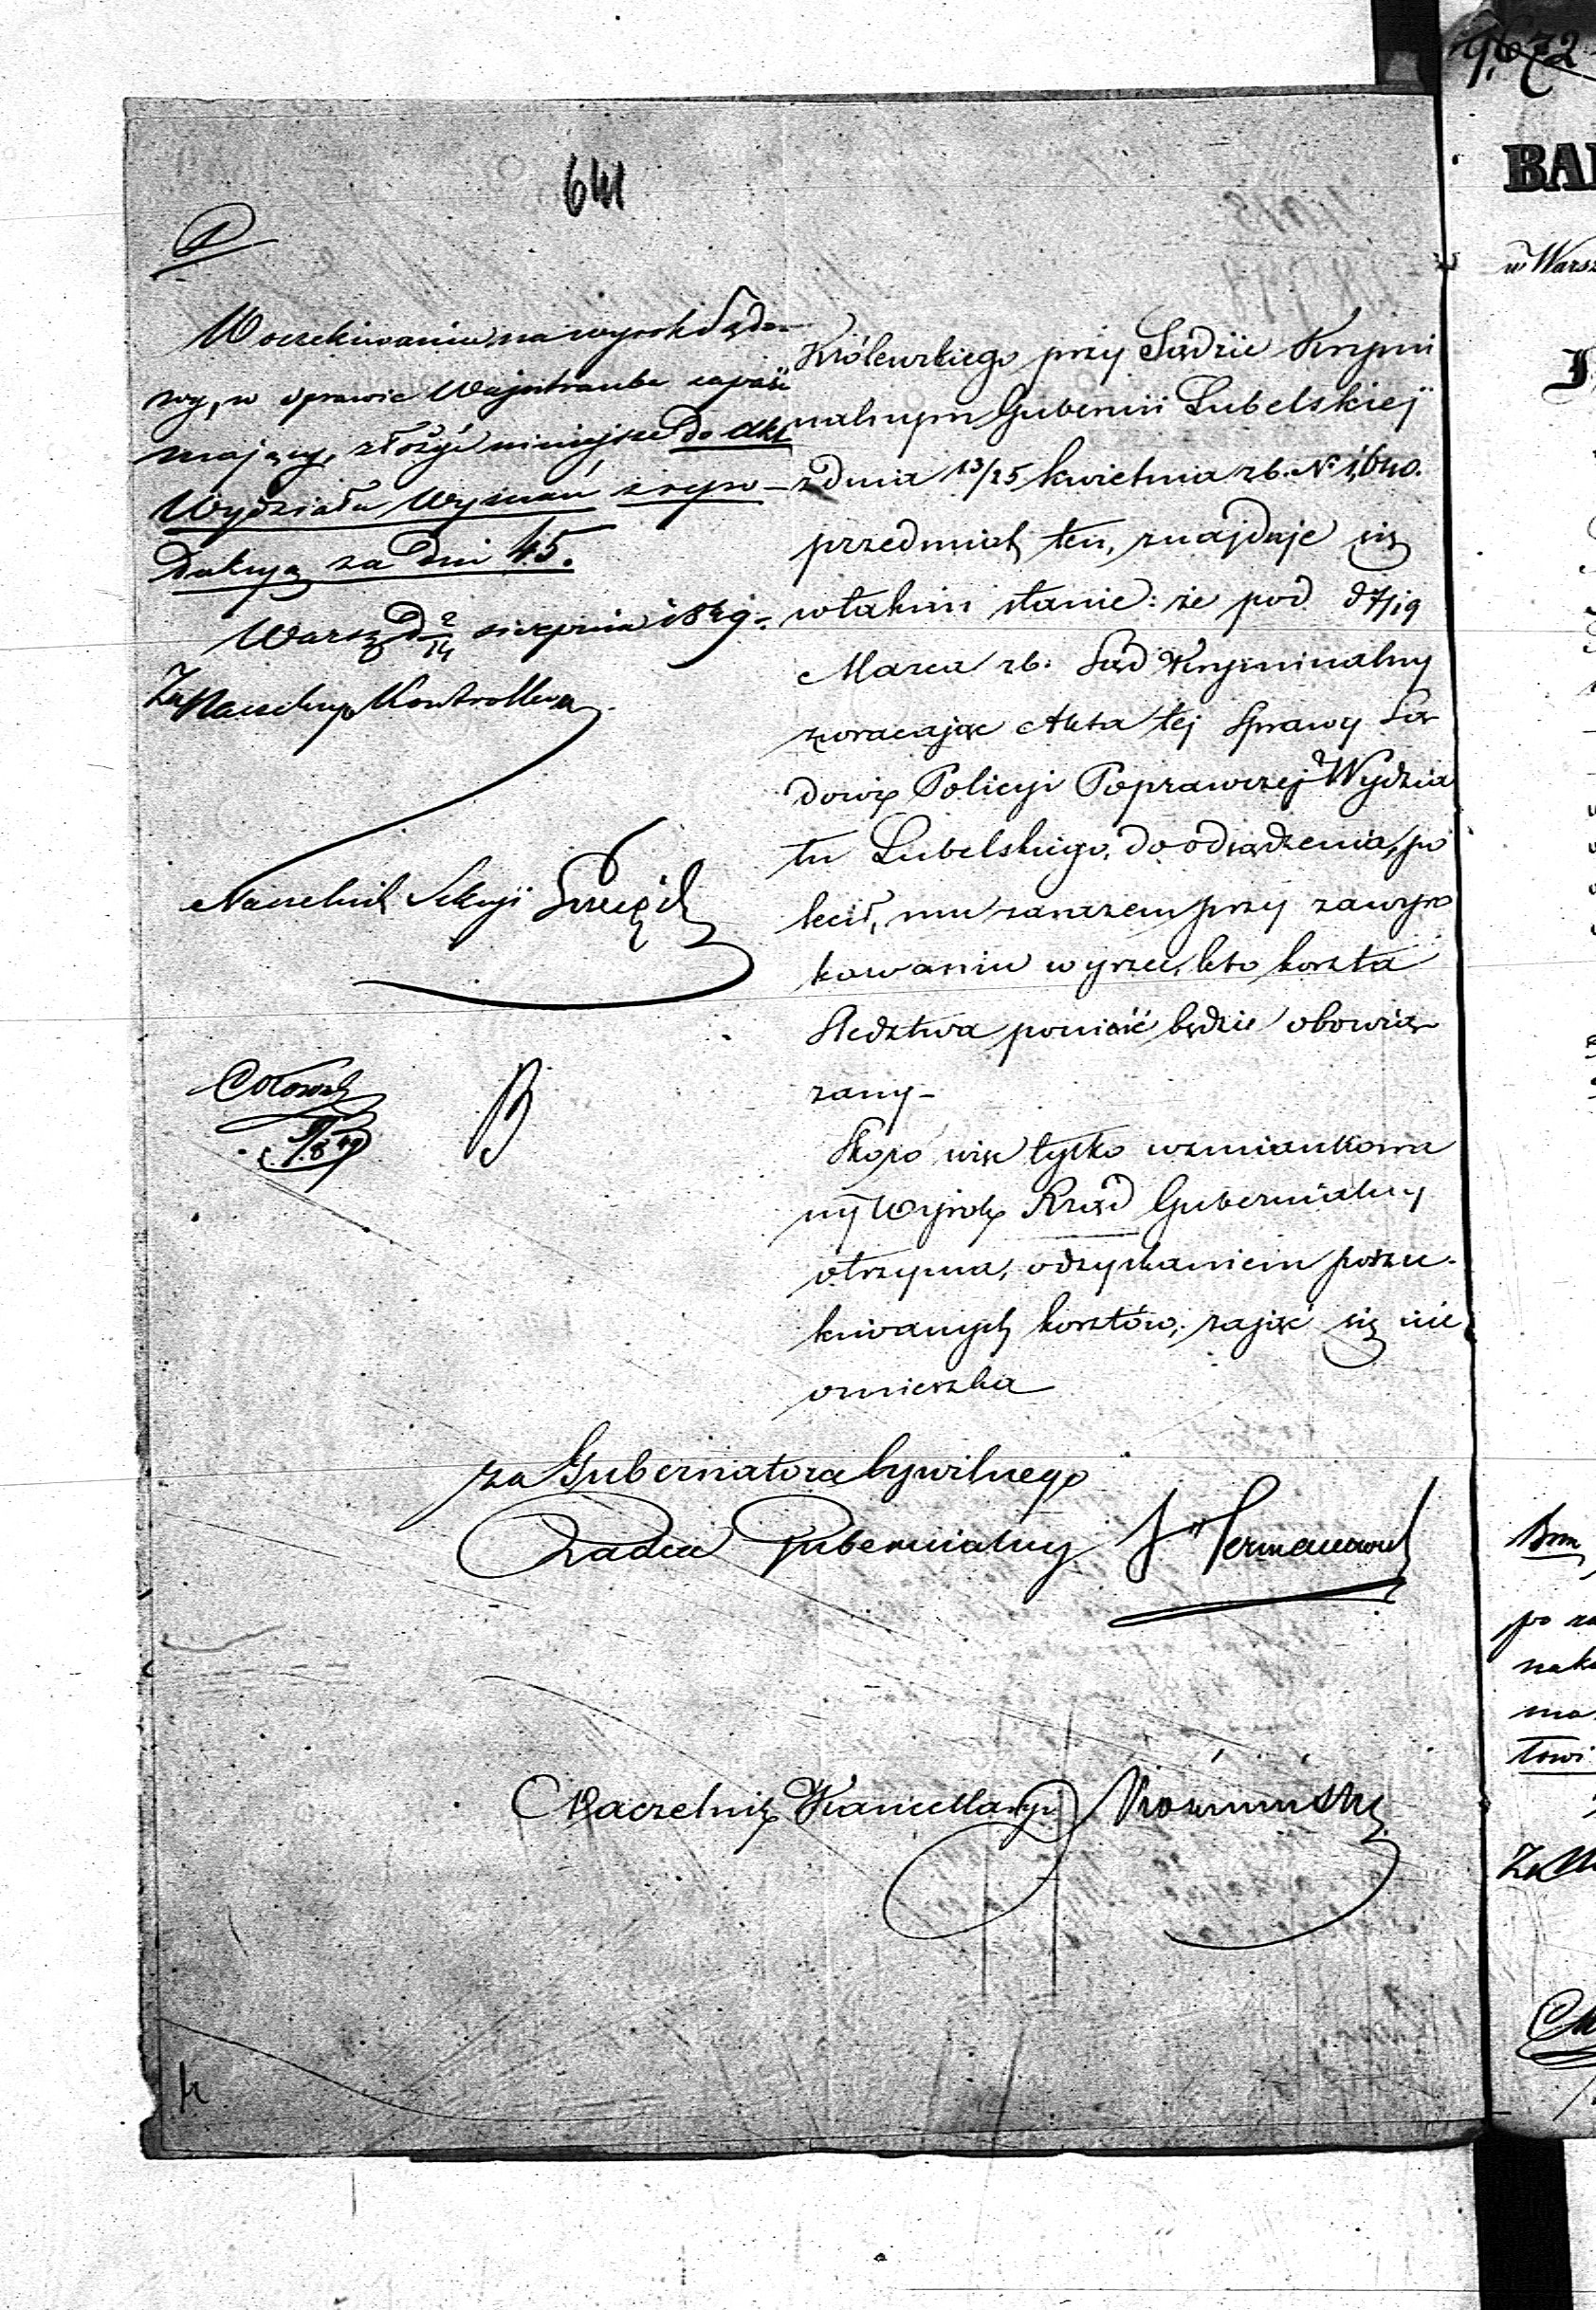 641
W oczekiwaniu na wyrok Sądo-
wy, w sprawie Wajntrauba zapaść
mający, złożyć niniejsze do akt
Wydziału Wyznań z repro-
dukcyą za dni 45.
Warsz. d 2/14 sierpnia 1849.
Za Naczelnika Kontrollera
Naczelnik Sekcyi
9/8 49
B
Królewskiego przy Sądzie Krymi
nalnym Gubernii Lubelskiej
z dnia 13/25 kwietnia rb. No 1,640.
przedmiot ten, znajduje się
w takim stanie: że pod d 7/19
Marca rb. Sąd Kryminalny
zwracając Akta tej Sprawy Są
dowi Policyi Poprawczej Wydzia
łu Lubelskiego, do odsądzenia, po
lecił, mu zarazem przy zawyro
kowaniu wyrzec, kto koszta
Śledztwa ponieść będzie obowią
zany –
Skoro więc tylko wzmiankowa
ny Wyrok Rząd Gubernialny
otrzyma, odzyskaniem poszu-
kiwanych kosztów, zająć się nie
omieszka
za Gubernatora Cywilnego
Radca Gubernialny
Naczelnik Kancellaryi
BA
w Warsz
po
nak
towi
Za